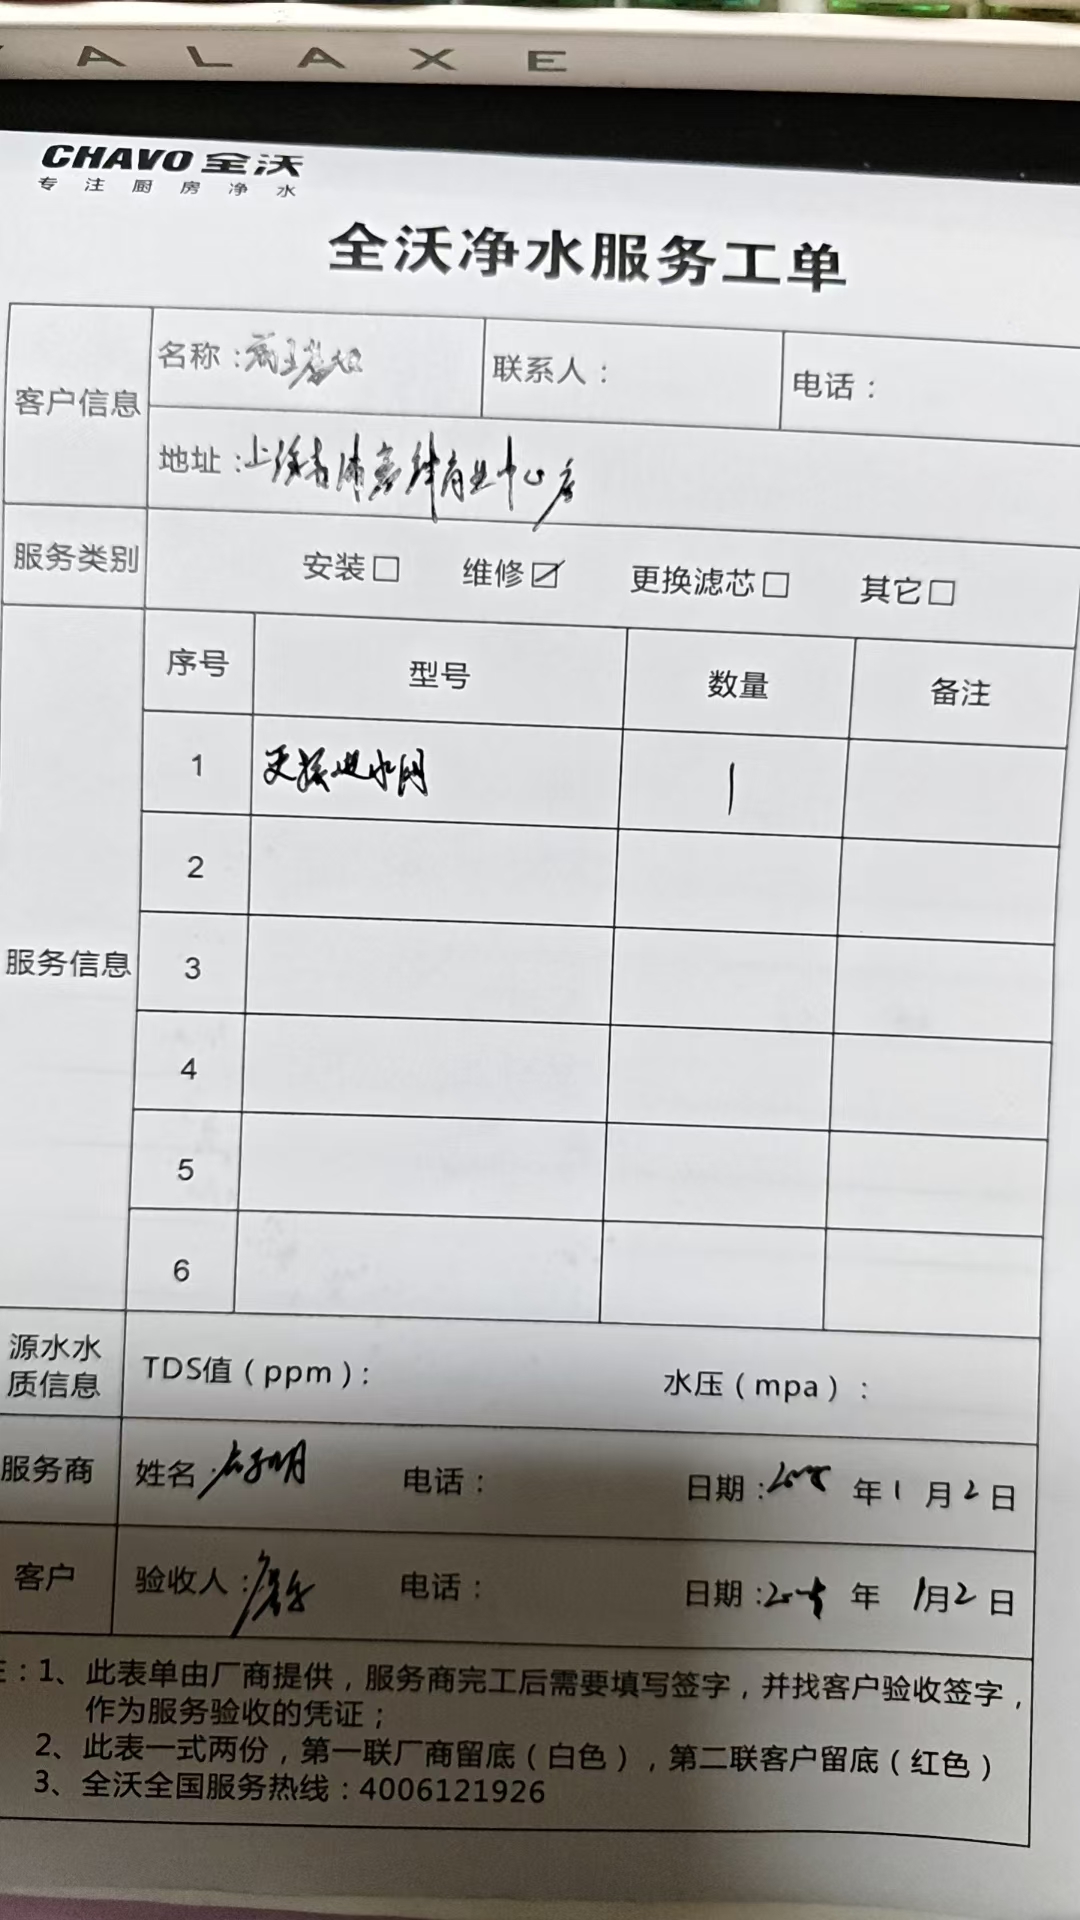 ALAXE
CHAVO 全沃
专注厨房净水
全沃净水服务工单
客户信息
名称：
联系人：
电话：
地址：上海青浦 中心店
服务类别
安装□ 维修☑ 更换滤芯□ 其它□
服务信息
序号 型号 数量 备注
1 更换进水阀 1
2
3
4
5
6
源水水质信息
TDS值（ppm）：
水压（mpa）：
服务商
姓名：
电话：
日期： 年1月2日
客户
验收人：
电话：
日期： 年1月2日
：1、此表单由厂商提供，服务商完工后需要填写签字，并找客户验收签字，
作为服务验收的凭证；
2、此表一式两份，第一联厂商留底（白色），第二联客户留底（红色）
3、全沃全国服务热线：4006121926